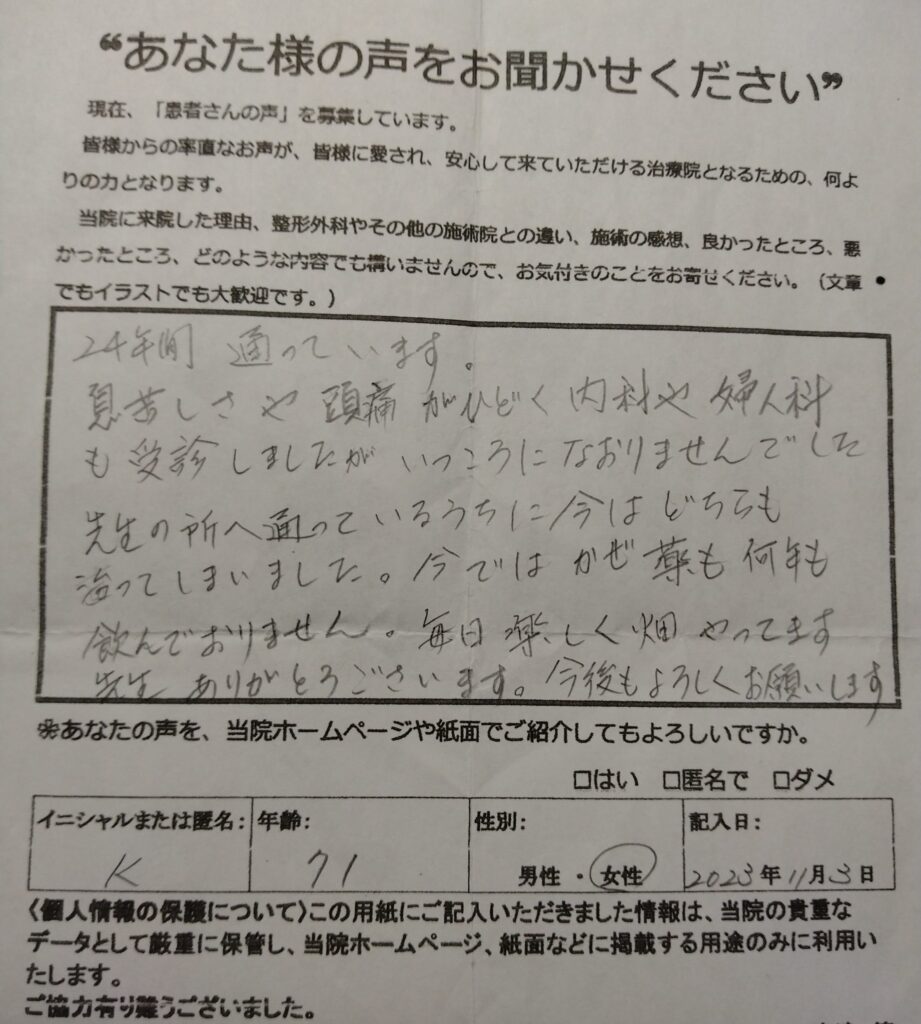 “あなた様の声をお聞かせください”
現在、「患者さんの声」を募集しています。
皆様からの率直なお声が、皆様に愛され、安心して来ていただける治療院となるための、何よ
りの力となります。
当院に来院した理由、整形外科やその他の施術院との違い、施術の感想、良かったところ、悪
かったところ、どのような内容でも構いませんので、お気付きのことをお寄せください。（文章
でもイラストでも大歓迎です。）
24年間 通っています。
息苦しさや 頭痛がひどく 内科や 婦人科
も受診しましたが いっころになおりませんでした
先生の所へ通っているうちに今はどちらも
治ってしまいました。今ではかぜ薬も何年も
飲んでおりません。毎日楽しく畑やってます
先生 ありがとうございます。今後もよろしくお願いします
※あなたの声を、当院ホームページや紙面でご紹介してもよろしいですか。
□はい □匿名で □ダメ
イニシャルまたは匿名: 年齢: 性別: 記入日:
K 71 男性 ・ 女性 2023年11月3日
〈個人情報の保護について〉この用紙にご記入いただきました情報は、当院の貴重な
データとして厳重に保管し、当院ホームページ、紙面などに掲載する用途のみに利用い
たします。
ご協力有り難うございました。